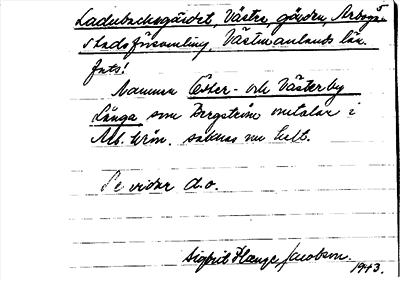 Ladubacksgärdet, Västra, gården, Arboga
stadsförsamling, Västmanlands län.
fats!
Namnen Öster- och Västerby
Länga som Bergström omtalar i
Arb. krön. saknas nu helt.
Se vidar d.o.
Sigfrid Hange Jacobson.
1943.